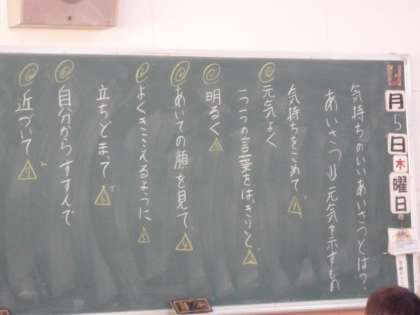 月
5日
木曜日
気持ちのいいあいさつとは？
あいさつ→元気を示すもの
気持ちをこめて
元気よく
一つ一つの言葉をはっきりと
明るく
あいての顔を見て
よくきこえるように
立ちどまって
自分からすすんで
近づいて